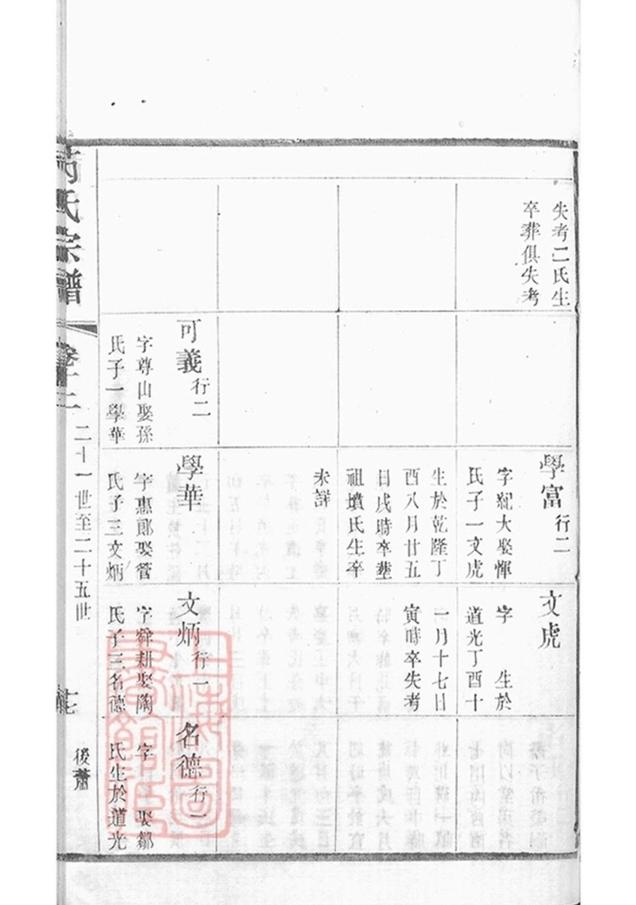 失考二氏生
卒葬俱失考
學富行二
字紀大娶惲
氏子一文虎
生於乾隆丁
酉八月廿五
日戌時卒塟
祖墳氏生卒
未詳
文虎
字 生於
道光丁酉十
一月十七日
寅時卒失考
可義行二
字尊山娶孫
氏子一學華
學華
字惠郎娶管
氏子三文炳
文炳行一
字舜耕娶陶
氏子三名德
名德行一
字 娶鄒
氏生於道光
氏宗譜
卷十二
二十一世至二十五世
後蕭